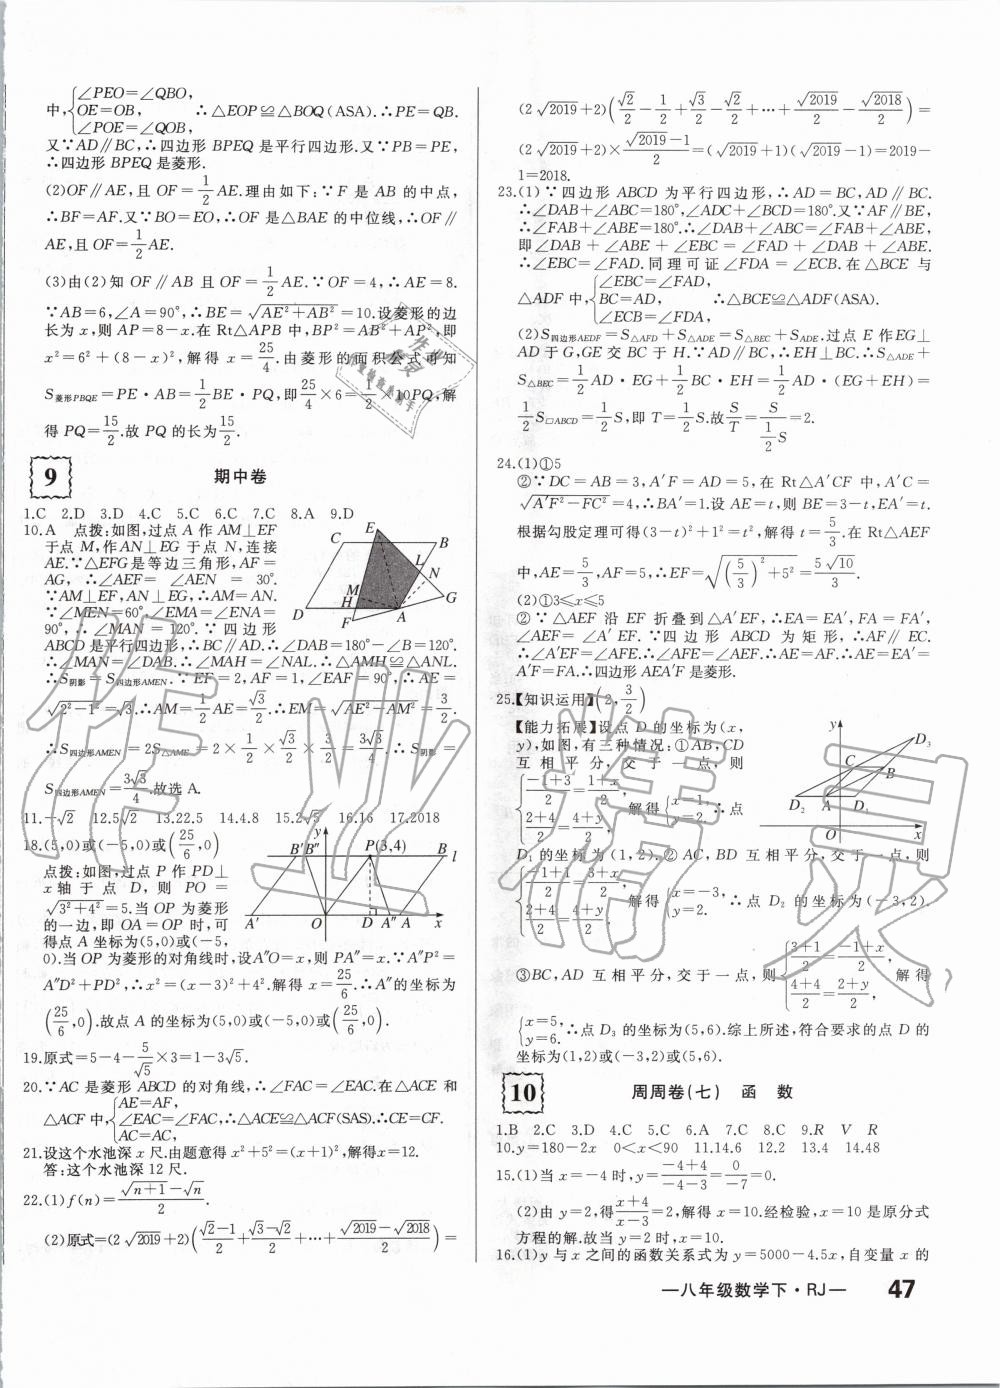 中,{∠PEO=∠QBO,
OE=OB,
∠POE=∠QOB, ∴△EOP≌△BOQ(ASA).∴PE=QB.
又∵AD∥BC,∴四边形BPEQ是平行四边形.又∵PB=PE,
∴四边形BPEQ是菱形.
(2)OF∥AE,且OF=1/2AE.理由如下:∵F是AB的中点,
∴BF=AF.又∵BO=EO,∴OF是△BAE的中位线,∴OF∥
AE,且OF=1/2AE.
(3)由(2)知OF∥AB且OF=1/2AE.∵OF=4,∴AE=8.
∵AB=6,∠A=90°,∴BE=√(AE²+AB²)=10.设菱形的边
长为x,则AP=8-x.在Rt△APB中,BP²=AB²+AP²,即
x²=6²+(8-x)²,解得x=25/4.由菱形的面积公式可知
S菱形PBQE=PE·AB=1/2BE·PQ,即25/4×6=1/2×10PQ,解
得PQ=15/2.故PQ的长为15/2.
9 期中卷
1.C 2.D 3.D 4.C 5.C 6.C 7.C 8.A 9.D
10.A 点拨:如图,过点A作AM⊥EF
于点M,作AN⊥EG于点N,连接
AE.∵△EFG是等边三角形,AF=
AG,∴∠AEF=∠AEN=30°.
∵AM⊥EF,AN⊥EG,∴AM=AN.
∵∠MEN=60°,∠EMA=∠ENA=
90°,∴∠MAN=120°.∵四边形
ABCD是平行四边形,∴BC∥AD.∴∠DAB=180°-∠B=120°.
∴∠MAN=∠DAB.∴∠MAH=∠NAL.∴△AMH≌△ANL.
∴S阴影=S四边形AMEN.∵EF=2,AF=1,∠EAF=90°,∴AE=
√(2²-1²)=√3.∴AM=1/2AE=√3/2.∴EM=√(AE²-AM²)=3/2.
∴S四边形AMEN=2S△AME=2×1/2×√3/2×3/2=3√3/4.∴S阴影=
S四边形AMEN=3√3/4.故选A.
C E B L N M H D F A G
11.-√2 12.5√2 13.22.5 14.4.8 15.2√5 16.16 17.2018
18.(5,0)或(-5,0)或(25/6,0)
点拨:如图,过点P作PD⊥
x轴于点D,则PO=
√(3²+4²)=5.当OP为菱形
的一边,即OA=OP时,可
得点A坐标为(5,0)或(-5,
0).当OP为菱形的对角线时,设A″O=x,则PA″=x.∵A″P²=
A″D²+PD²,∴x²=(x-3)²+4².解得x=25/6.∴A″的坐标为
(25/6,0).故点A的坐标为(5,0)或(-5,0)或(25/6,0).
y B′ B″ P(3,4) B l A′ O D A″ A x
19.原式=5-4-5/√5×3=1-3√5.
20.∵AC是菱形ABCD的对角线,∴∠FAC=∠EAC.在△ACE和
△ACF中,{AE=AF,
∠EAC=∠FAC,∴△ACE≌△ACF(SAS).∴CE=CF.
AC=AC,
21.设这个水池深x尺.由题意得x²+5²=(x+1)²,解得x=12.
答:这个水池深12尺.
22.(1)f(n)=(√(n+1)-√n)/2.
(2)原式=(2√2019+2)((√2-1)/2+(√3-√2)/2+…+(√2019-√2018)/2)=
(2√2019+2)(√2/2-1/2+√3/2-√2/2+…+√2019/2-√2018/2)=
(2√2019+2)×(√2019-1)/2=(√2019+1)(√2019-1)=2019-
1=2018.
23.(1)∵四边形ABCD为平行四边形,∴AD=BC,AD∥BC.
∴∠DAB+∠ABC=180°,∠ADC+∠BCD=180°.又∵AF∥BE,
∴∠FAB+∠ABE=180°.∴∠DAB+∠ABC=∠FAB+∠ABE,
即∠DAB+∠ABE+∠EBC=∠FAD+∠DAB+∠ABE.
∴∠EBC=∠FAD.同理可证∠FDA=∠ECB.在△BCE与
△ADF中,{∠EBC=∠FAD,
BC=AD,
∠ECB=∠FDA, ∴△BCE≌△ADF(ASA).
(2)S四边形AEDF=S△AFD+S△ADE=S△BEC+S△ADE.过点E作EG⊥
AD于G,GE交BC于H.∵AD∥BC,∴EH⊥BC.∴S△ADE+
S△BEC=1/2AD·EG+1/2BC·EH=1/2AD·(EG+EH)=
1/2S▱ABCD=1/2S,即T=1/2S.故S/T=S/(1/2S)=2.
24.(1)①5
②∵DC=AB=3,A′F=AD=5,在Rt△A′CF中,A′C=
√(A′F²-FC²)=4,∴BA′=1.设AE=t,则BE=3-t,EA′=t.
根据勾股定理可得(3-t)²+1²=t²,解得t=5/3.在Rt△AEF
中,AE=5/3,AF=5,∴EF=√((5/3)²+5²)=5√10/3.
(2)①3≤x≤5
②∵△AEF沿EF折叠到△A′EF,∴EA=EA′,FA=FA′,
∠AEF=∠A′EF.∵四边形ABCD为矩形,∴AF∥EC.
∴∠A′EF=∠AFE.∴∠AFE=∠AEF.∴AE=AF.∴AE=EA′=
A′F=FA.∴四边形AEA′F是菱形.
25.【知识运用】(2,3/2)
【能力拓展】设点D的坐标为(x,
y),如图,有三种情况:①AB,CD
互相平分,交于一点,则
{(-1+3)/2=(1+x)/2,
(2+4)/2=(4+y)/2, 解得{x=1,
y=2. ∴点
y D₃ C B D₂ A D₁ O x
D₁的坐标为(1,2).②AC,BD互相平分,交于一点,则
{(-1+1)/2=(3+x)/2,
(2+4)/2=(4+y)/2, 解得{x=-3,
y=2. ∴点D₂的坐标为(-3,2).
③BC,AD互相平分,交于一点,则{(3+1)/2=(-1+x)/2,
(4+4)/2=(2+y)/2, 解得
{x=5,
y=6. ∴点D₃的坐标为(5,6).综上所述,符合要求的点D的
坐标为(1,2)或(-3,2)或(5,6).
10 周周卷(七) 函数
1.B 2.C 3.D 4.C 5.C 6.A 7.C 8.C 9.R V R
10.y=180-2x 0<x<90 11.14.6 12.2 13.4 14.48
15.(1)当x=-4时,y=(-4+4)/(-4-3)=0/-7=0.
(2)由y=2,得(x+4)/(x-3)=2,解得x=10.经检验,x=10是原分式
方程的解.故当y=2时,x=10.
16.(1)y与x之间的函数关系式为y=5000-4.5x,自变量x的
—八年级数学下·RJ— 47
作业精灵